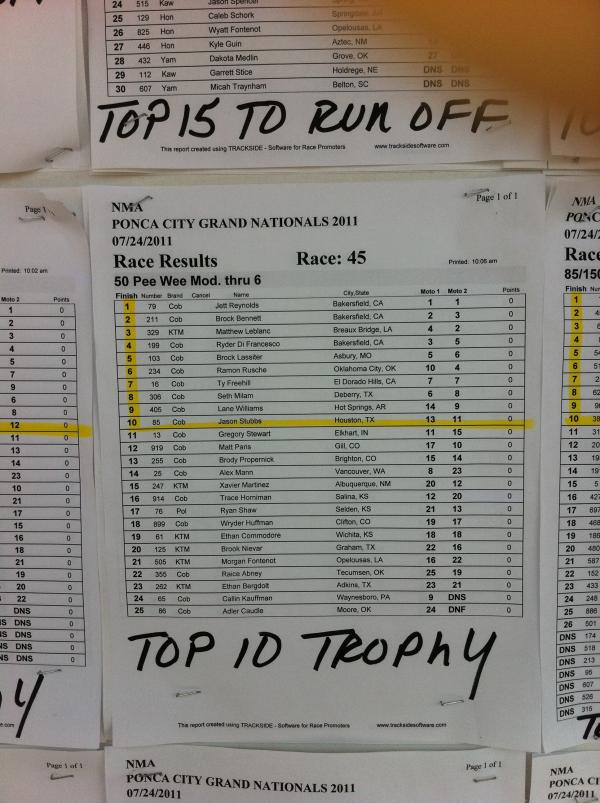 24 515 Kaw Jason Spencer
25 129 Hon Caleb Schork Springdale,
26 825 Hon Wyatt Fontenot Opelousas, LA
27 446 Hon Kyle Guin Aztec, NM
28 432 Yam Dakota Medlin Grove, OK 27
29 112 Kaw Garrett Stice Holdrege, NE DNS DNS
30 607 Yam Micah Traynham Belton, SC DNS DNS
TOP 15 TO RUN OFF
This report created using TRACKSIDE - Software for Race Promoters www.tracksidesoftware.com
NMA Page 1 of 1
PONCA CITY GRAND NATIONALS 2011
07/24/2011
Race Results Race: 45 Printed: 10:06 am
50 Pee Wee Mod. thru 6
Finish Number Brand Cancel Name City,State Moto 1 Moto 2 Points
1 79 Cob Jett Reynolds Bakersfield, CA 1 1 0
2 211 Cob Brock Bennett Bakersfield, CA 2 3 0
3 329 KTM Matthew Leblanc Breaux Bridge, LA 4 2 0
4 199 Cob Ryder Di Francesco Bakersfield, CA 3 5 0
5 103 Cob Brock Lassiter Asbury, MO 5 6 0
6 234 Cob Ramon Rusche Oklahoma City, OK 10 4 0
7 16 Cob Ty Freehill El Dorado Hills, CA 7 7 0
8 306 Cob Seth Milam Deberry, TX 6 8 0
9 405 Cob Lane Williams Hot Springs, AR 14 9 0
10 85 Cob Jason Stubbs Houston, TX 13 11 0
11 13 Cob Gregory Stewart Elkhart, IN 11 15 0
12 919 Cob Matt Paris Gill, CO 17 10 0
13 255 Cob Brody Propernick Brighton, CO 15 14 0
14 25 Cob Alex Mann Vancouver, WA 8 23 0
15 247 KTM Xavier Martinez Albuquerque, NM 20 12 0
16 914 Cob Trace Horniman Salina, KS 12 20 0
17 76 Pol Ryan Shaw Selden, KS 21 13 0
18 899 Cob Wryder Huffman Clifton, CO 19 17 0
19 61 KTM Ethan Commodore Wichita, KS 18 18 0
20 125 KTM Brook Nievar Graham, TX 22 16 0
21 505 KTM Morgan Fontenot Opelousas, LA 16 22 0
22 355 Cob Raice Abney Tecumsen, OK 25 19 0
23 262 KTM Ethan Bergdolt Adkins, TX 23 21 0
24 65 Cob Callin Kauffman Waynesboro, PA 9 DNS 0
25 86 Cob Adler Caudle Moore, OK 24 DNF 0
TOP 10 TROPHY
This report created using TRACKSIDE - Software for Race Promoters www.tracksidesoftware.com
NMA Page 1 of 1
PONCA CITY GRAND NATIONALS 2011
07/24/2011
Page 1
Printed: 10:02 am
Moto 2 Points
1 0
2 0
3 0
4 0
5 0
7 0
9 0
6 0
8 0
12 0
11 0
13 0
14 0
23 0
10 0
21 0
17 0
15 0
16 0
18 0
21 0
19 0
20 0
22 0
DNS 0
DNS 0
DNS 0
DNS DNS 0
DNS DNS 0
Page 1 of 1
NMA
PONC
07/24
Race
85/150
Finish
1
2
3
4
5
6
7
8
9
10
11
12
13
14
15
16 427
17 697
18 468
19 186
20 480
21 587
22 152
23 433
24 248
25 886
26 501
DNS 174
DNS 518
DNS 213
DNS 95
DNS 607
DNS 526
DNS 315
NMA
PONCA CI
07/24/2011